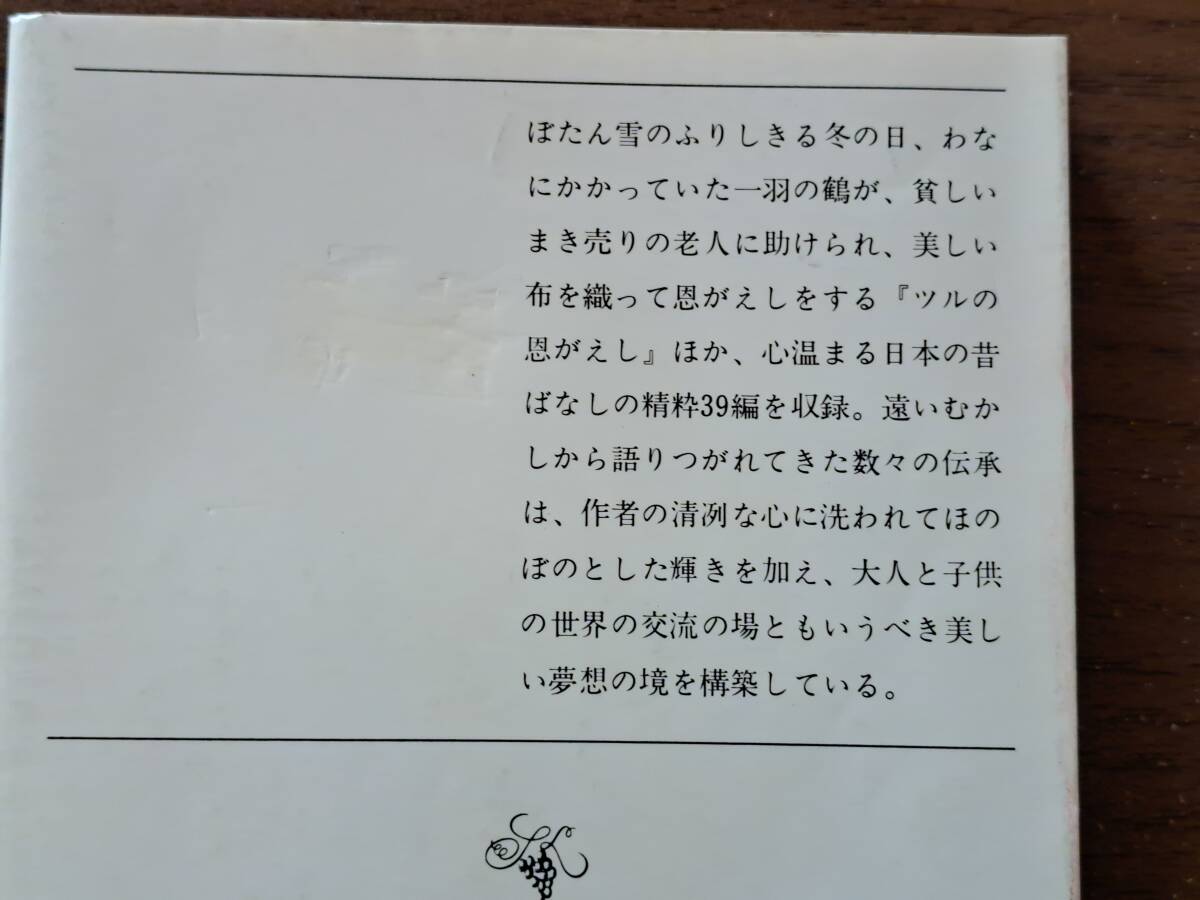 ぼたん雪のふりしきる冬の日、わな
にかかっていた一羽の鶴が、貧しい
まき売りの老人に助けられ、美しい
布を織って恩がえしをする『ツルの
恩がえし』ほか、心温まる日本の昔
ばなしの精粋39編を収録。遠いむか
しから語りつがれてきた数々の伝承
は、作者の清冽な心に洗われてほの
ぼのとした輝きを加え、大人と子供
の世界の交流の場ともいうべき美し
い夢想の境を構築している。